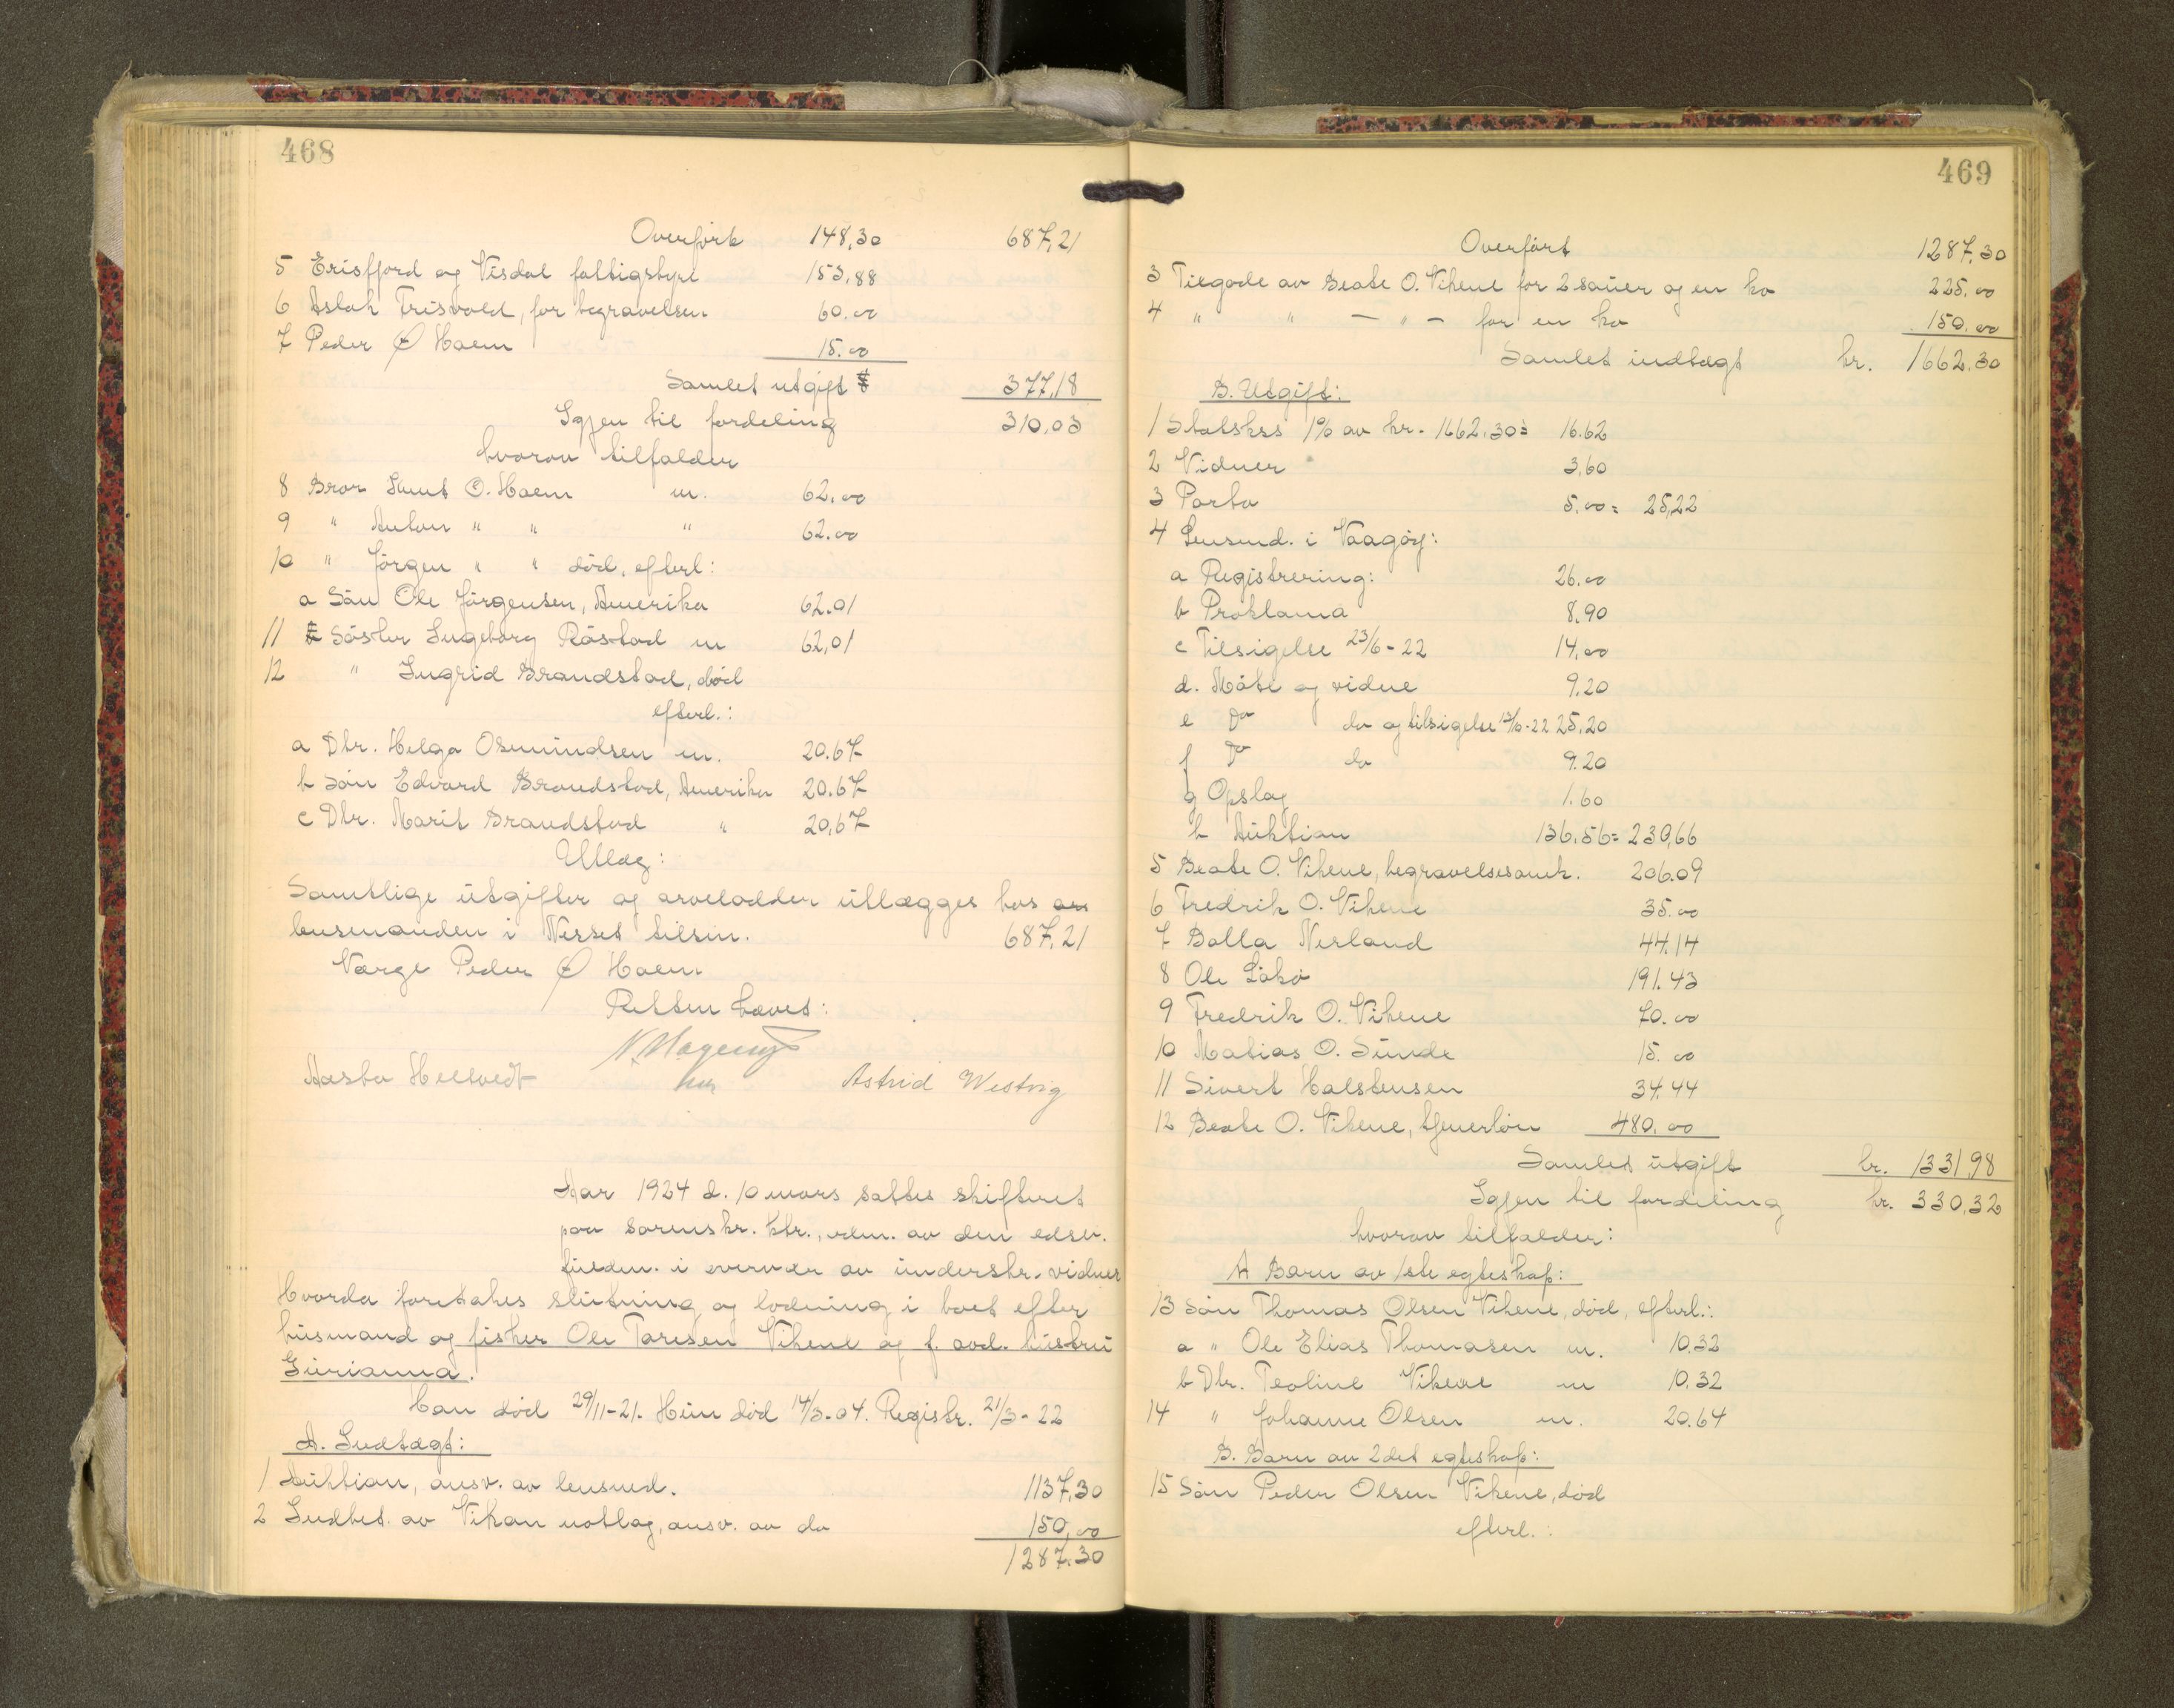 468
Overført 148,30 687,21
5 Erisfjord og Visdal fattigstyre 153,88
6 Aslak Frisvold, for begravelsen 60.00
7 Peder Ø Haem 15.00
Samlet utgift 377,18
Igjen til fordeling 310,03
hvorav tilfalder
8 Bror Knut O. Haem m. 62.00
9 " Anton " " " 62.00
10 " Jörgen " " död, efterl:
a Sön Ole Jörgensen, Amerika 62.01
11 Söster Ingeborg Röstad m 62,01
12 " Ingrid Brandstad, död
efterl.:
a Dtr. Helga Osmundsen m. 20.67
b Sön Edvard Brandstad, Amerika 20.67
c Dtr. Marit Brandstad " 20,67
Utlæg:
Samtlige utgifter og arvelodder utlægges hos
lensmanden i Nesset tilsm. 687,21
Værge Peder Ø Haem
Retten hævet:
Aasta Heltvedt Astrid Westvig
Aar 1924 d. 10 mars sattes skifteret
paa sorenskr. ktr., adm. av den edsv.
fuldm. i overvær av underskr. vidner
Hvorda foretakes slutning og lodning i boet efter
husmand og fisker Ole Taresen Vikene og f. avd. hustru
Gurianna.
Han död 29/11-21. Hun död 14/3-04. Registr. 21/3-22
A. Indtægt:
1 Auktion, ansv. av lensmd. 1137,30
2 Indbet. av Vikan notlag, ansv. av do 150,00
1287.30
469
Overført 1287,30
3 Tilgode av Beate O. Vikene for 2 sauer og en ko 225.00
4 " " — " — for en ko 150.00
Samlet indtægt kr. 1662,30
B. Utgift:
1 Statskss 1% av kr. 1662,30 = 16.62
2 Vidner 3,60
3 Porto 5.00 = 25,22
4 Lensmd. i Vaagöy:
a Registrering: 26.00
b Proklama 8,90
c Tilsigelse 23/6-22 14,00
d. Möte og vidne 9.20
e Do do og tilsigelse 13/6-22 25,20
f Do do 9.20
g Opslag 1.60
h Auktion 136,56 = 230,66
5 Beate O. Vikene, begravelsesomk. 206.09
6 Fredrik O. Vikene 35.00
7 Bolla Nerland 44.14
8 Ole Lökö 191.43
9 Fredrik O. Vikene 70.00
10 Matias O. Sunde 15.00
11 Sivert Halstensen 34.44
12 Beate O. Vikene, tjenerlön 480.00
Samlet utgift kr. 1331,98
Igjen til fordeling kr. 330,32
hvorav tilfalder:
A Barn av 1ste egteskap:
13 Sön Thomas Olsen Vikene, död, efterl.:
a " Ole Elias Thomasen m. 10.32
b Dtr. Teoline Vikene m 10.32
14 " Johanne Olsen m. 20.64
B. Barn av 2det egteskap:
15 Sön Peder Olsen Vikene, död
efterl.: